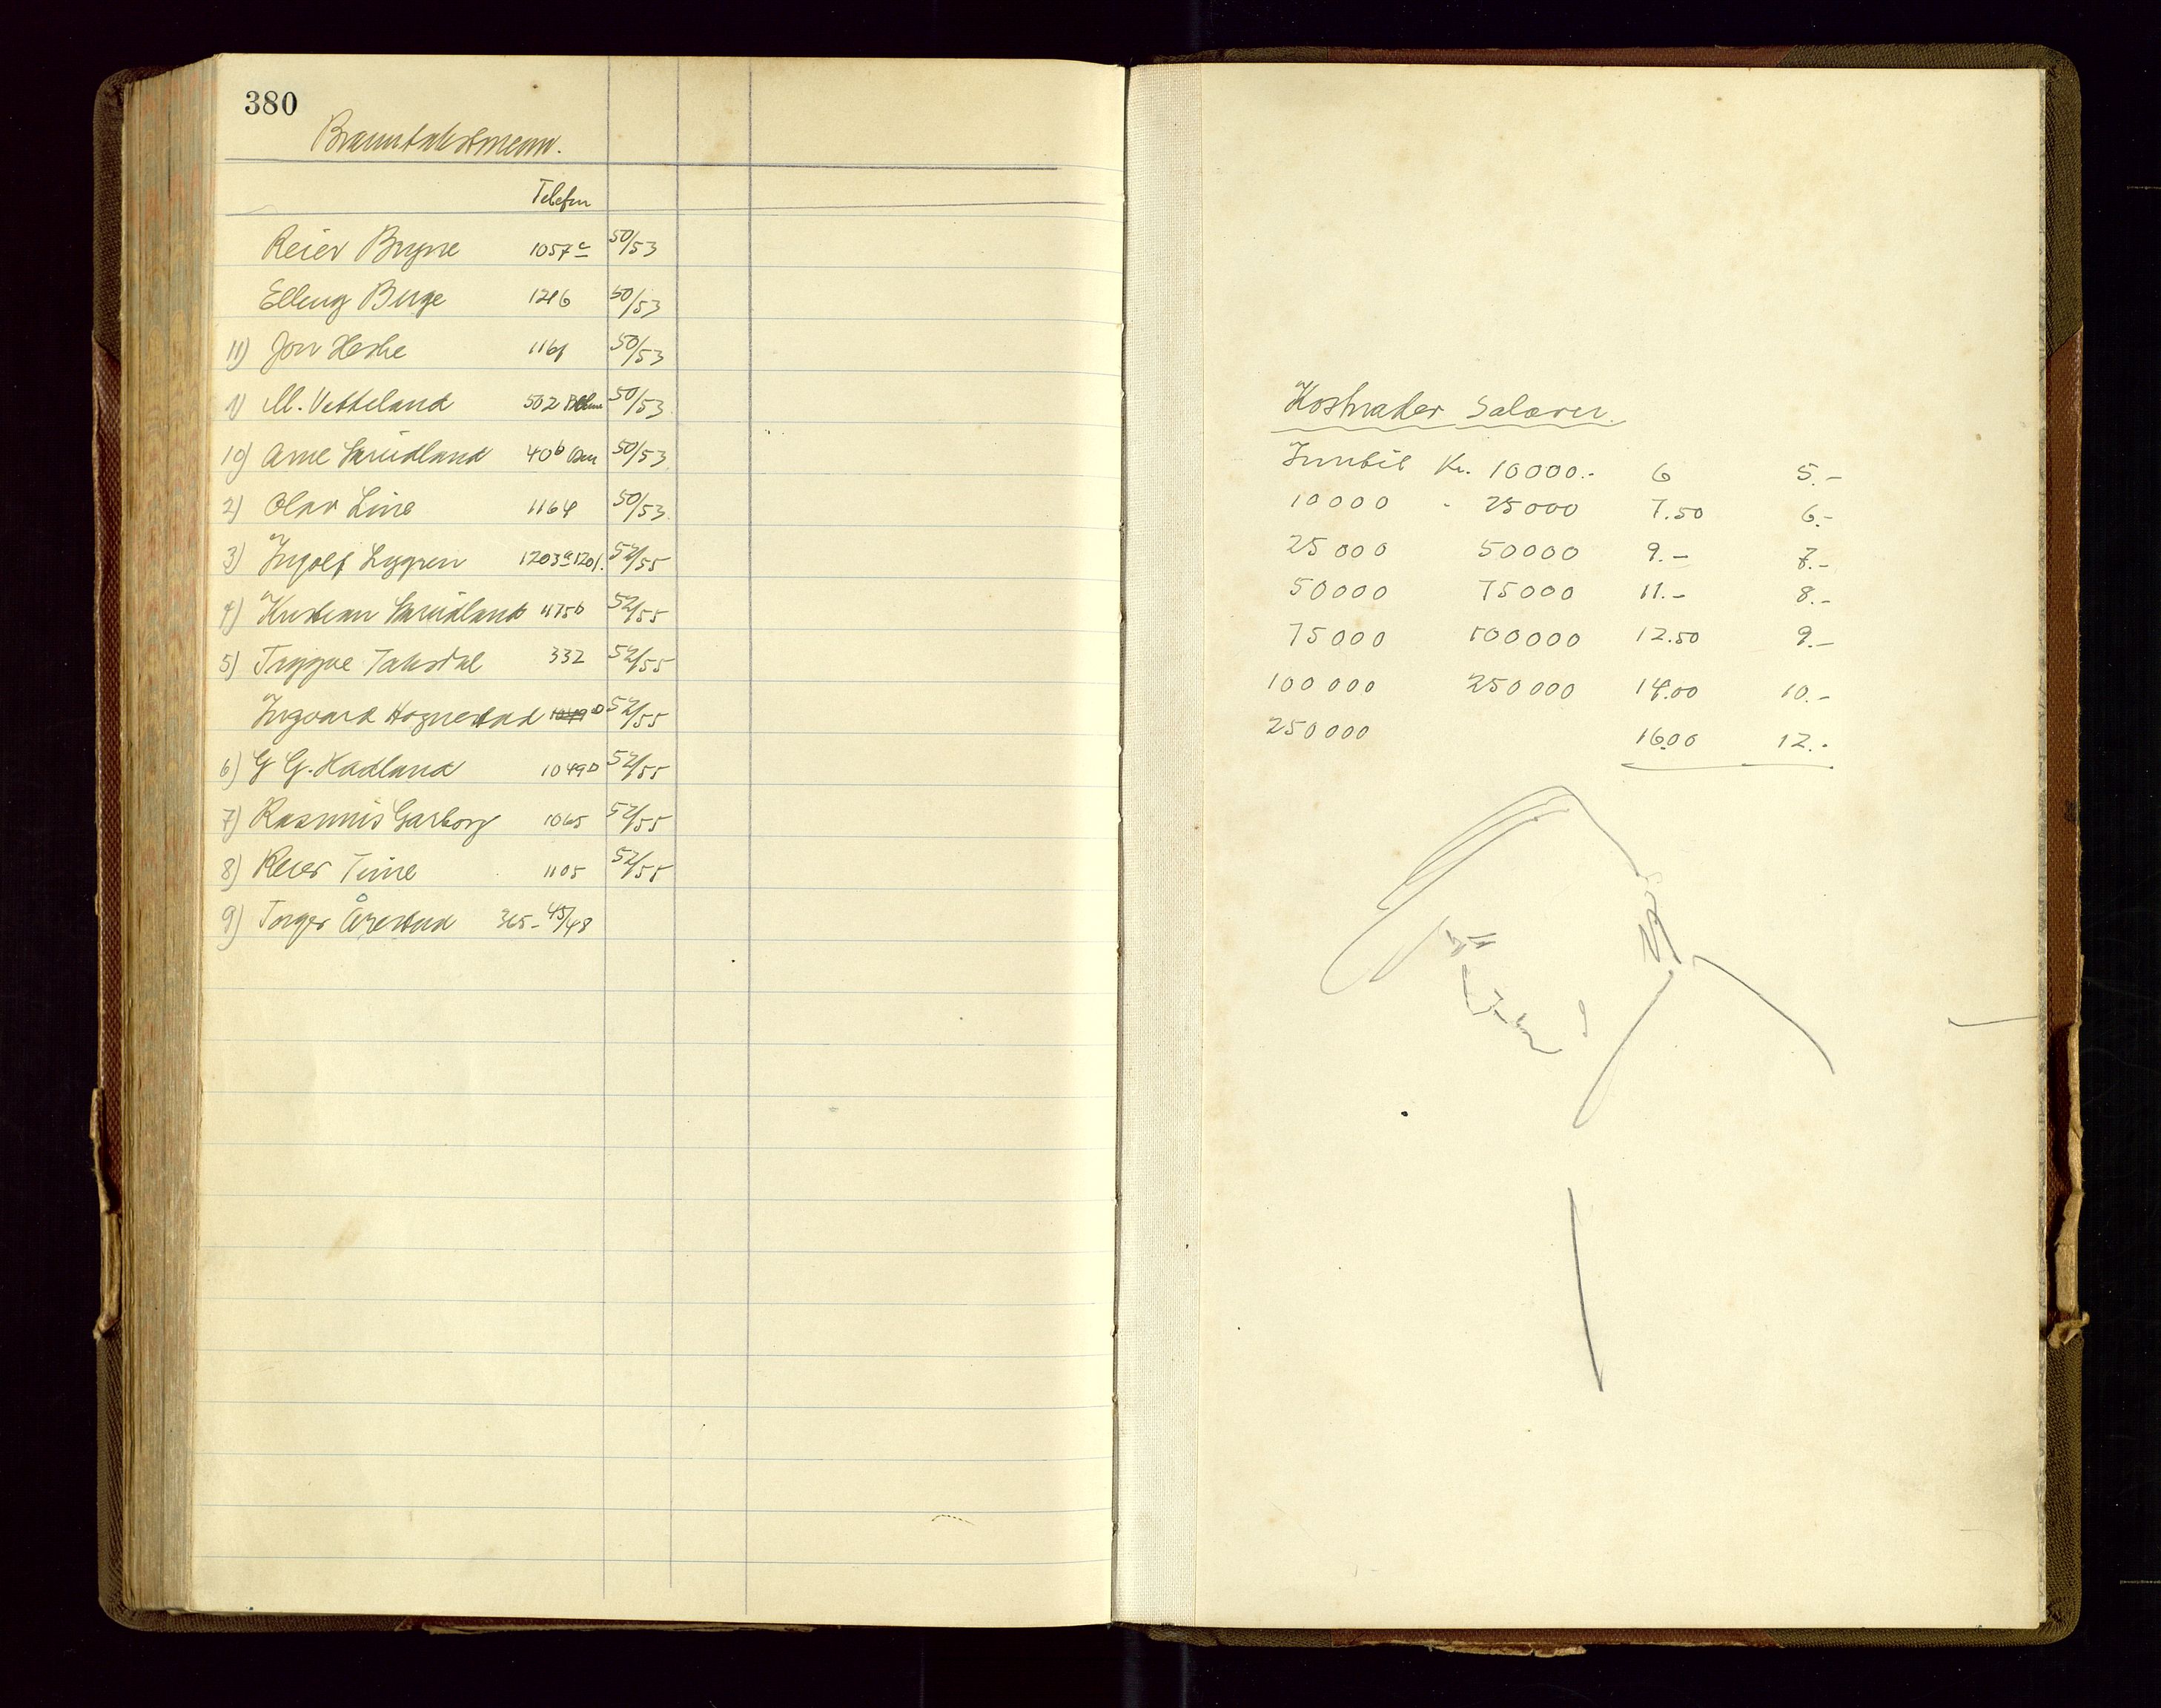 380
Branntakstmenn.
Telefon
Reier Bryne 1057c 50/53
Elling Berge 1216 50/53
11) Jon Heskje 1161 50/53
1) M. Vetteland 502 50/53
10) Arne Skrudland 40b 50/53
2) Olav Line 1164 50/53
3) Ingolf Lygren 1203a 1201. 52/55
4) Kristian Skrudland 1175b 52/55
5) Tryggve Taksdal 332 52/55
Ingvard Hognestad 1049D 52/55
6) G G. Hadland 1049D 52/55
7) Rasmus Garborg 1065 52/55
8) Reier Time 1105 52/55
9) Torger Årestad 365- 45/48
Kostnader Salærer.
Inntil Kr. 10000.- 6 5.-
10000 - 25000 7.50 6.-
25000 50000 9.- 7.-
50000 75000 11.- 8.-
75000 100000 12.50 9.-
100000 250000 14.00 10.-
250000 16.00 12.-